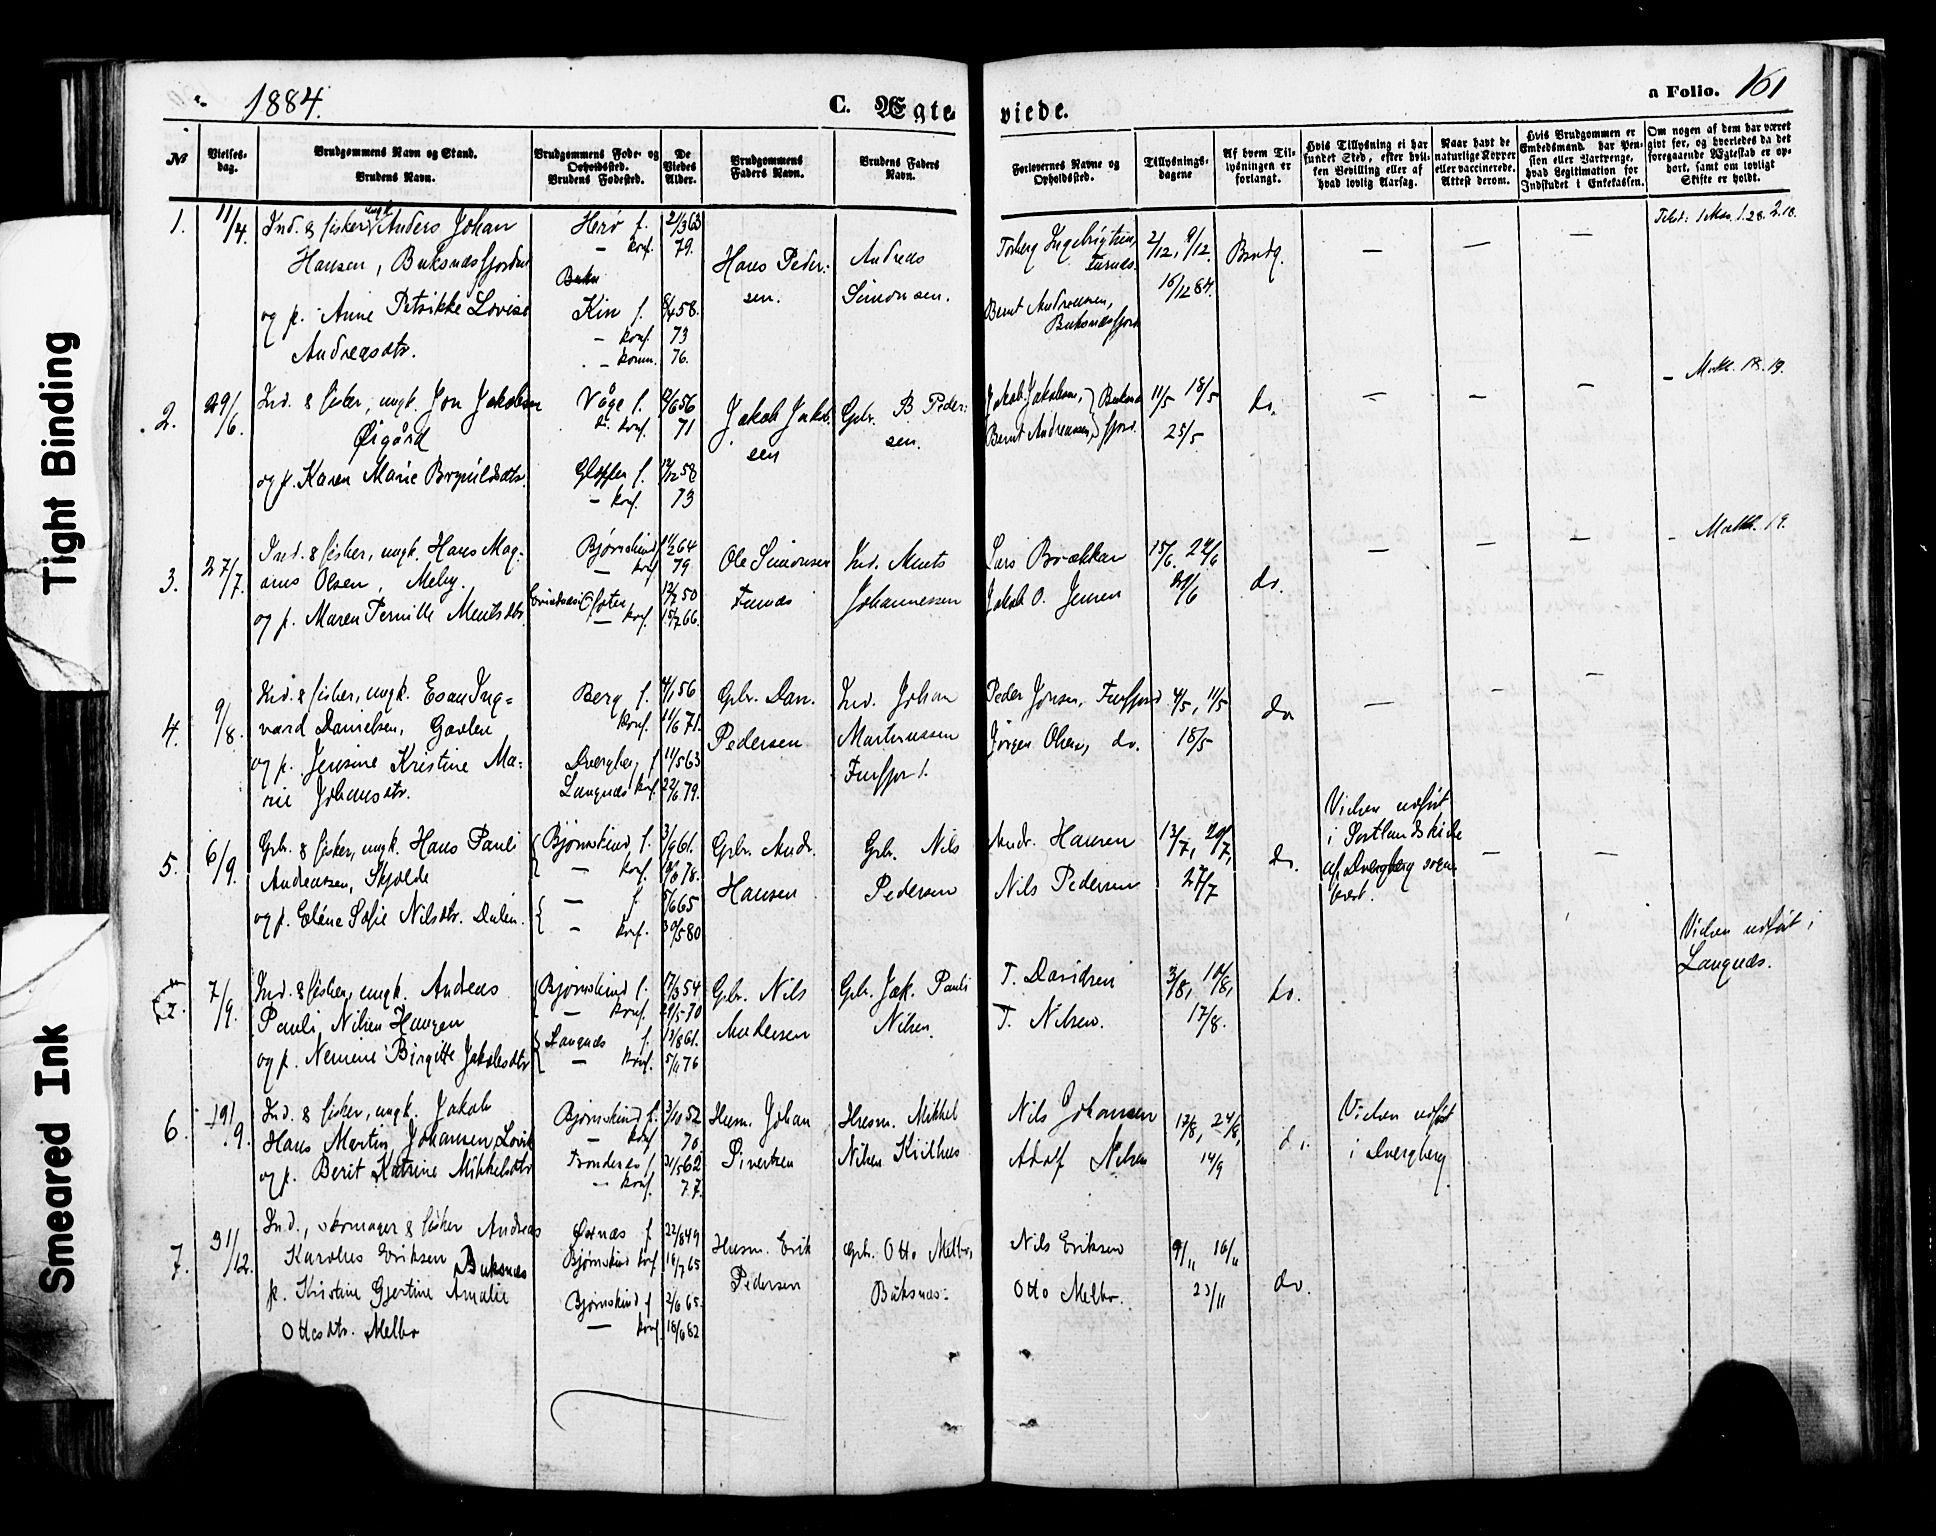 1884.
C. Ægte
viede.
a Folio. 161
No
Vielses-
dag.
Brudgommens Navn og Stand.
Brudens Navn.
Brudgommens Føde- og
Opholdssted.
Brudens Fødested.
De
Viedes
Alder.
Brudgommens
Faders Navn.
Brudens Faders
Navn.
Forlovernes Navne og
Opholdssted.
Tillysnings-
dagene
Af hvem Til-
lysningen er
forlangt.
Hvis Tillysning ei har
fundet Sted, efter hvil-
ken Bevilling eller af
hvad lovlig Aarsag.
Naar havt de
naturlige Kopper
eller vaccinerede.
Attest derom.
Hvis Brudgommen er
Embedsmand, har Pen-
sion eller Vartpenge,
hvad Legitimation for
Indskudet i Enkekassen.
Om nogen af dem har været
gift før, og hvorledes da det
foregaaende Ægteskab er op-
hørt, samt om lovligt
Skifte er holdt.
1. 11/4. Ind. & fisker ungk. Anders Johan
Hansen, Buksnæsfjorden
og p. Anne Petrikke Lovise
Andreasdtr.
Herø f. 2/3 63
— konf. 79.
Kin f. 8/4 58.
— konf. 73
— komm. 76.
Hans Peder-
sen.
Andreas
Simonsen.
Torberg Ingebrigtsen,
Furnæs.
Bernt Andreassen,
Buksnæsfjord
2/12, 9/12.
16/12 84.
Brudg.
— — —
2. 29/6. Ind. & fisker, ungk. Jon Jakobsen
Øigård
og p. Karen Marie Brynildsdtr.
Våge f. 8/6 56
konf. 71
Gloppen f. 12/12 58
— konf. 73
Jakob Jakob-
sen
Gbr. B. Peder-
sen.
Jakob Jakobsen,
Bernt Andreassen, } Buksnæsfjord.
11/5 18/5
25/5
do.
— — —
— Matth. 18. 19.
3. 27/7. Ind. & fisker, ungk. Hans Mag-
nus Olsen, Melby.
og p. Maren Pernille Mentsdtr.
Bjørnskind 64
— konf 79
Ofoten 50
— konf. 66.
Ole Simonsen
Furnæs
Ind. Ments
Johannessen
Lars Brækkan
Jakob O. Jensen
15/6. 22/6
29/6
do.
— — —
— Matth. 19.
4. 9/8. Ind. & fisker, ungk. Esau Ing-
vard Danielsen, Gavlen
og p. Jensine Kristine Ma-
rie Johansdtr.
Berg f. 4/1 56
konf. 11/6 71.
Dverberg f 11/5 63
Langnæs konf. 22/6 79.
Gbr. Dan.
Pedersen
Ind. Johan
Martinussen
Furfjor f.
Peder Jonsen, Furfjord
Jørgen Olsen, do.
4/5, 11/5
18/5
do
— — —
5. 6/9. Gbr. & fisker, ungk. Hans Pauli
Andreassen, Skjolde
og p. Eléne Sofie Nilsdtr. Dalen.
Bjørnskind f. 3/9 61.
— konf. 78.
— f 5/6 65
— konf. 30/5 80
Gbr. Andr.
Hansen
Gbr. Nils
Pedersen
Andr. Hansen
Nils Pedersen
13/7, 20/7,
27/7
do.
Vielsen udført
i Sortlands kirke
af Dverberg sogne-
prest.
— —
7/9. Ind. & fisker, ungk. Andreas
Pauli Nilsen Haugen
og p. Nemine Birgitte Jakobsdtr.
Bjørnskind f. 17/3 54
— konf. 29/5 70
Langnæs f. 13/8 61.
— konf. 5/11 76
Gbr. Nils
Andersen
Gbr. Jak. Pauli
Nilsen.
T. Davidsen
T. Nilsen.
3/8, 10/8,
17/8.
do.
Vielsen udført i
Langnæs.
6. 19/9. Ind. & fisker, ungk. Jakob
Hans Martin Johansen, Lovik
og p. Berit Katrine Mikkelsdtr
Bjørnskind f. 3/10 52
— konf 70.
Trondenæs f. 31/5 62
— konf. 77.
Husm. Johan
Sivertsen
Husm. Mikkel
Nilsen Kvithus
Nils Johansen
Adolf Nilsen
17/8, 24/8,
14/9
do.
Vielsen udført
i Dverberg
7. 31/12. Ind., skomager & fisker Andreas
Karolius Eriksen Buksnæs
p. Kristine Gjertine Amalie
Ottesdtr. Melbo
Øxnæs f 22/8 49
Bjørnskind konf 16/7 65
Bjørnskind f 2/6 65.
— konf. 18/6 82
Husm. Erik
Pedersen
Gbr. Otto Melbo,
Buksnæs.
Nils Eriksen
Otto Melbo.
9/11 16/11
23/11
do.
Tight Binding
Smeared Ink